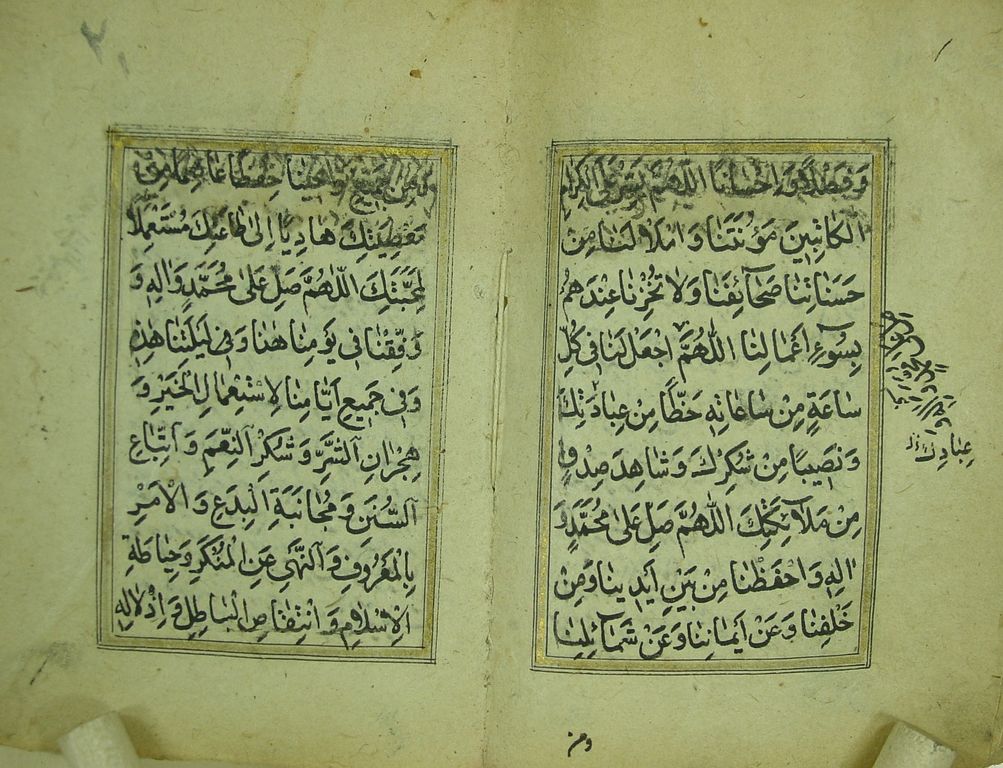 اَللّٰهُمَّ يَسِّرْ عَلَى الْكِرَامِ
الْكَاتِبِينَ مَؤُنَتَنَا وَامْلَاْ لَنَا مِنْ
حَسَنَاتِنَا صَحَآئِفَنَا وَلَا تُخْزِنَا عِنْدَهُمْ
بِسُوۤءِ اَعْمَالِنَا اَللّٰهُمَّ اجْعَلْ لَنَا فِي كُلِّ
سَاعَةٍ مِنْ سَاعَاتِهِ حَظًّا مِنْ عِبَادَتِكَ
وَنَصِيبًا مِنْ شُكْرِكَ وَشَاهِدَ صِدْقٍ
مِنْ مَلَآئِكَتِكَ اَللّٰهُمَّ صَلِّ عَلَى مُحَمَّدٍ وَ
اٰلِهِ وَاحْفَظْنَا مِنْ بَيْنِ اَيْدِينَا وَمِنْ
خَلْفِنَا وَعَنْ اَيْمَانِنَا وَعَنْ شَمَآئِلِنَا
عِبَادِكَ
ومن
حِفْظًا عَاصِمًا مِنْ
مَعْصِيَتِكَ هَادِيًا اِلَى طَاعَتِكَ مُسْتَعْمِلًا
لِمَحَبَّتِكَ اَللّٰهُمَّ صَلِّ عَلَى مُحَمَّدٍ وَاٰلِهِ وَ
وَفِّقْنَا فِي يَوْمِنَا هٰذَا وَفِي لَيْلَتِنَا هٰذِهِ
وَفِي جَمِيعِ اَيَّامِنَا لِاسْتِعْمَالِ الْخَيْرِ وَ
هِجْرَانِ الشَّرِّ وَشُكْرِ النِّعَمِ وَاتِّبَاعِ
السُّنَنِ وَمُجَانَبَةِ الْبِدَعِ وَالْاَمْرِ
بِالْمَعْرُوفِ وَالنَّهْيِ عَنِ الْمُنْكَرِ وَحِيَاطَةِ
الْاِسْلَامِ وَانْتِقَاصِ الْبَاطِلِ وَاِذْلَالِهِ